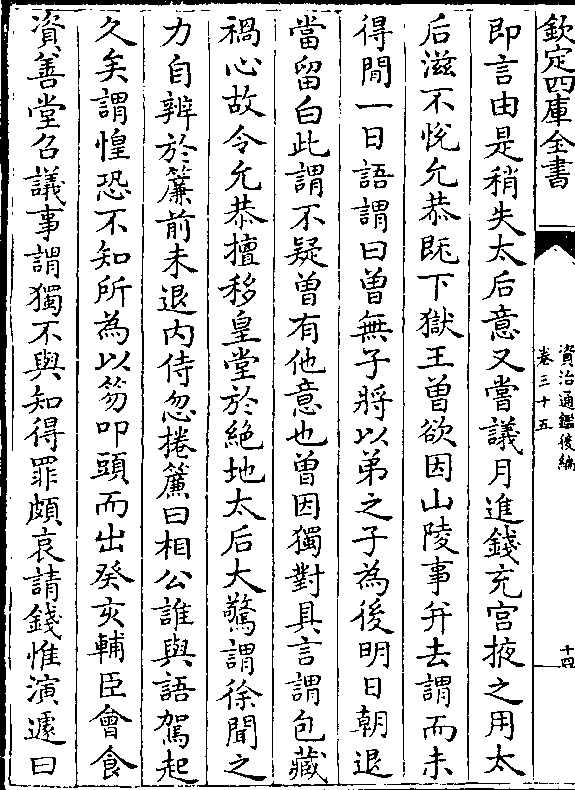 欽定四庫全書
資治通鑑後編
卷三十五
十四
即言由是稍失太后意又嘗議月進錢充宫掖之用太
后滋不悅允恭既下獄王曾欲因山陵事并去謂而未
得間一日語謂曰曾無子將以弟之子為後明日朝退
當留白此謂不疑曾有他意也曾因獨對具言謂包藏
禍心故令允恭擅移皇堂於絶地太后大驚謂徐聞之
力自辨於簾前未退内侍忽捲簾曰相公誰與語駕起
久矣謂惶恐不知所為以笏叩頭而出癸亥輔臣會食
資善堂召議事謂獨不與知得罪頗哀請錢惟演遽曰